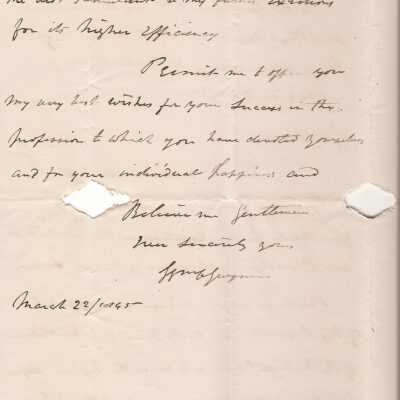 the best
for its higher Efficiency
Permit me to offer you
my very best wishes for your Success in the
profession to which you have devoted yourselves
and for your individual happiness and
Believe me Gentlemen
very sincerely yours
March 22/1845